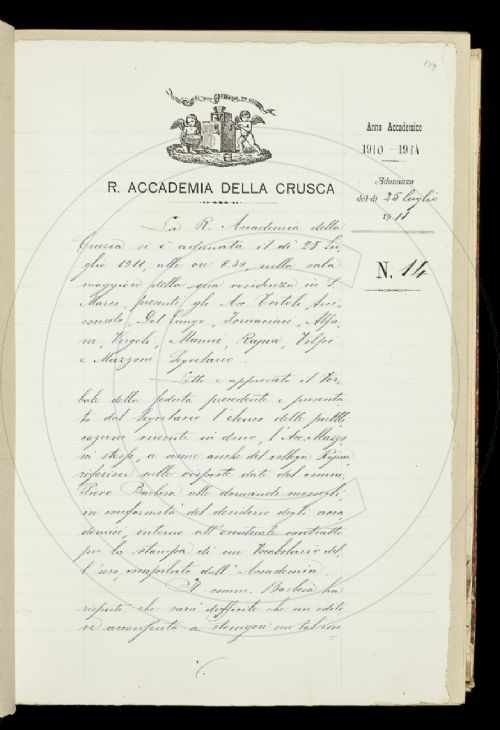 129
Anno Accademico
1910-1911
Adunanza
del dì 25 luglio
1911
N. 14
R. ACCADEMIA DELLA CRUSCA
La R. Accademia della
Crusca si è adunata il dì 25 lu-
glio 1911, alle ore 8.30, nella sala
maggiore della sua residenza in S.
Marco, presenti gli Acc. Tortoli, Arci-
consolo, Del Lungo, Fornaciari, Alfa-
ni, Vitelli, Manni, Rajna, Volpi
e Mazzoni Segretario.
Letto e approvato il Ver-
bale della seduta precedente e presenta-
to dal Segretario l'elenco delle pubbli-
cazioni ricevute in dono, l'Acc. Mazzo
ni stesso, a nome anche del collega Rajna
riferisce sulle risposte date dal comm.
Piero Barbèra alle domande mossegli
in conformità del desiderio degli acca
demici, intorno all'eventuale contratto
per la stampa di un Vocabolario del
l'uso, compilato dall'Accademia.
Il comm. Barbèra ha
risposto che sarà difficile che un edito
re acconsenta a stampare un tal